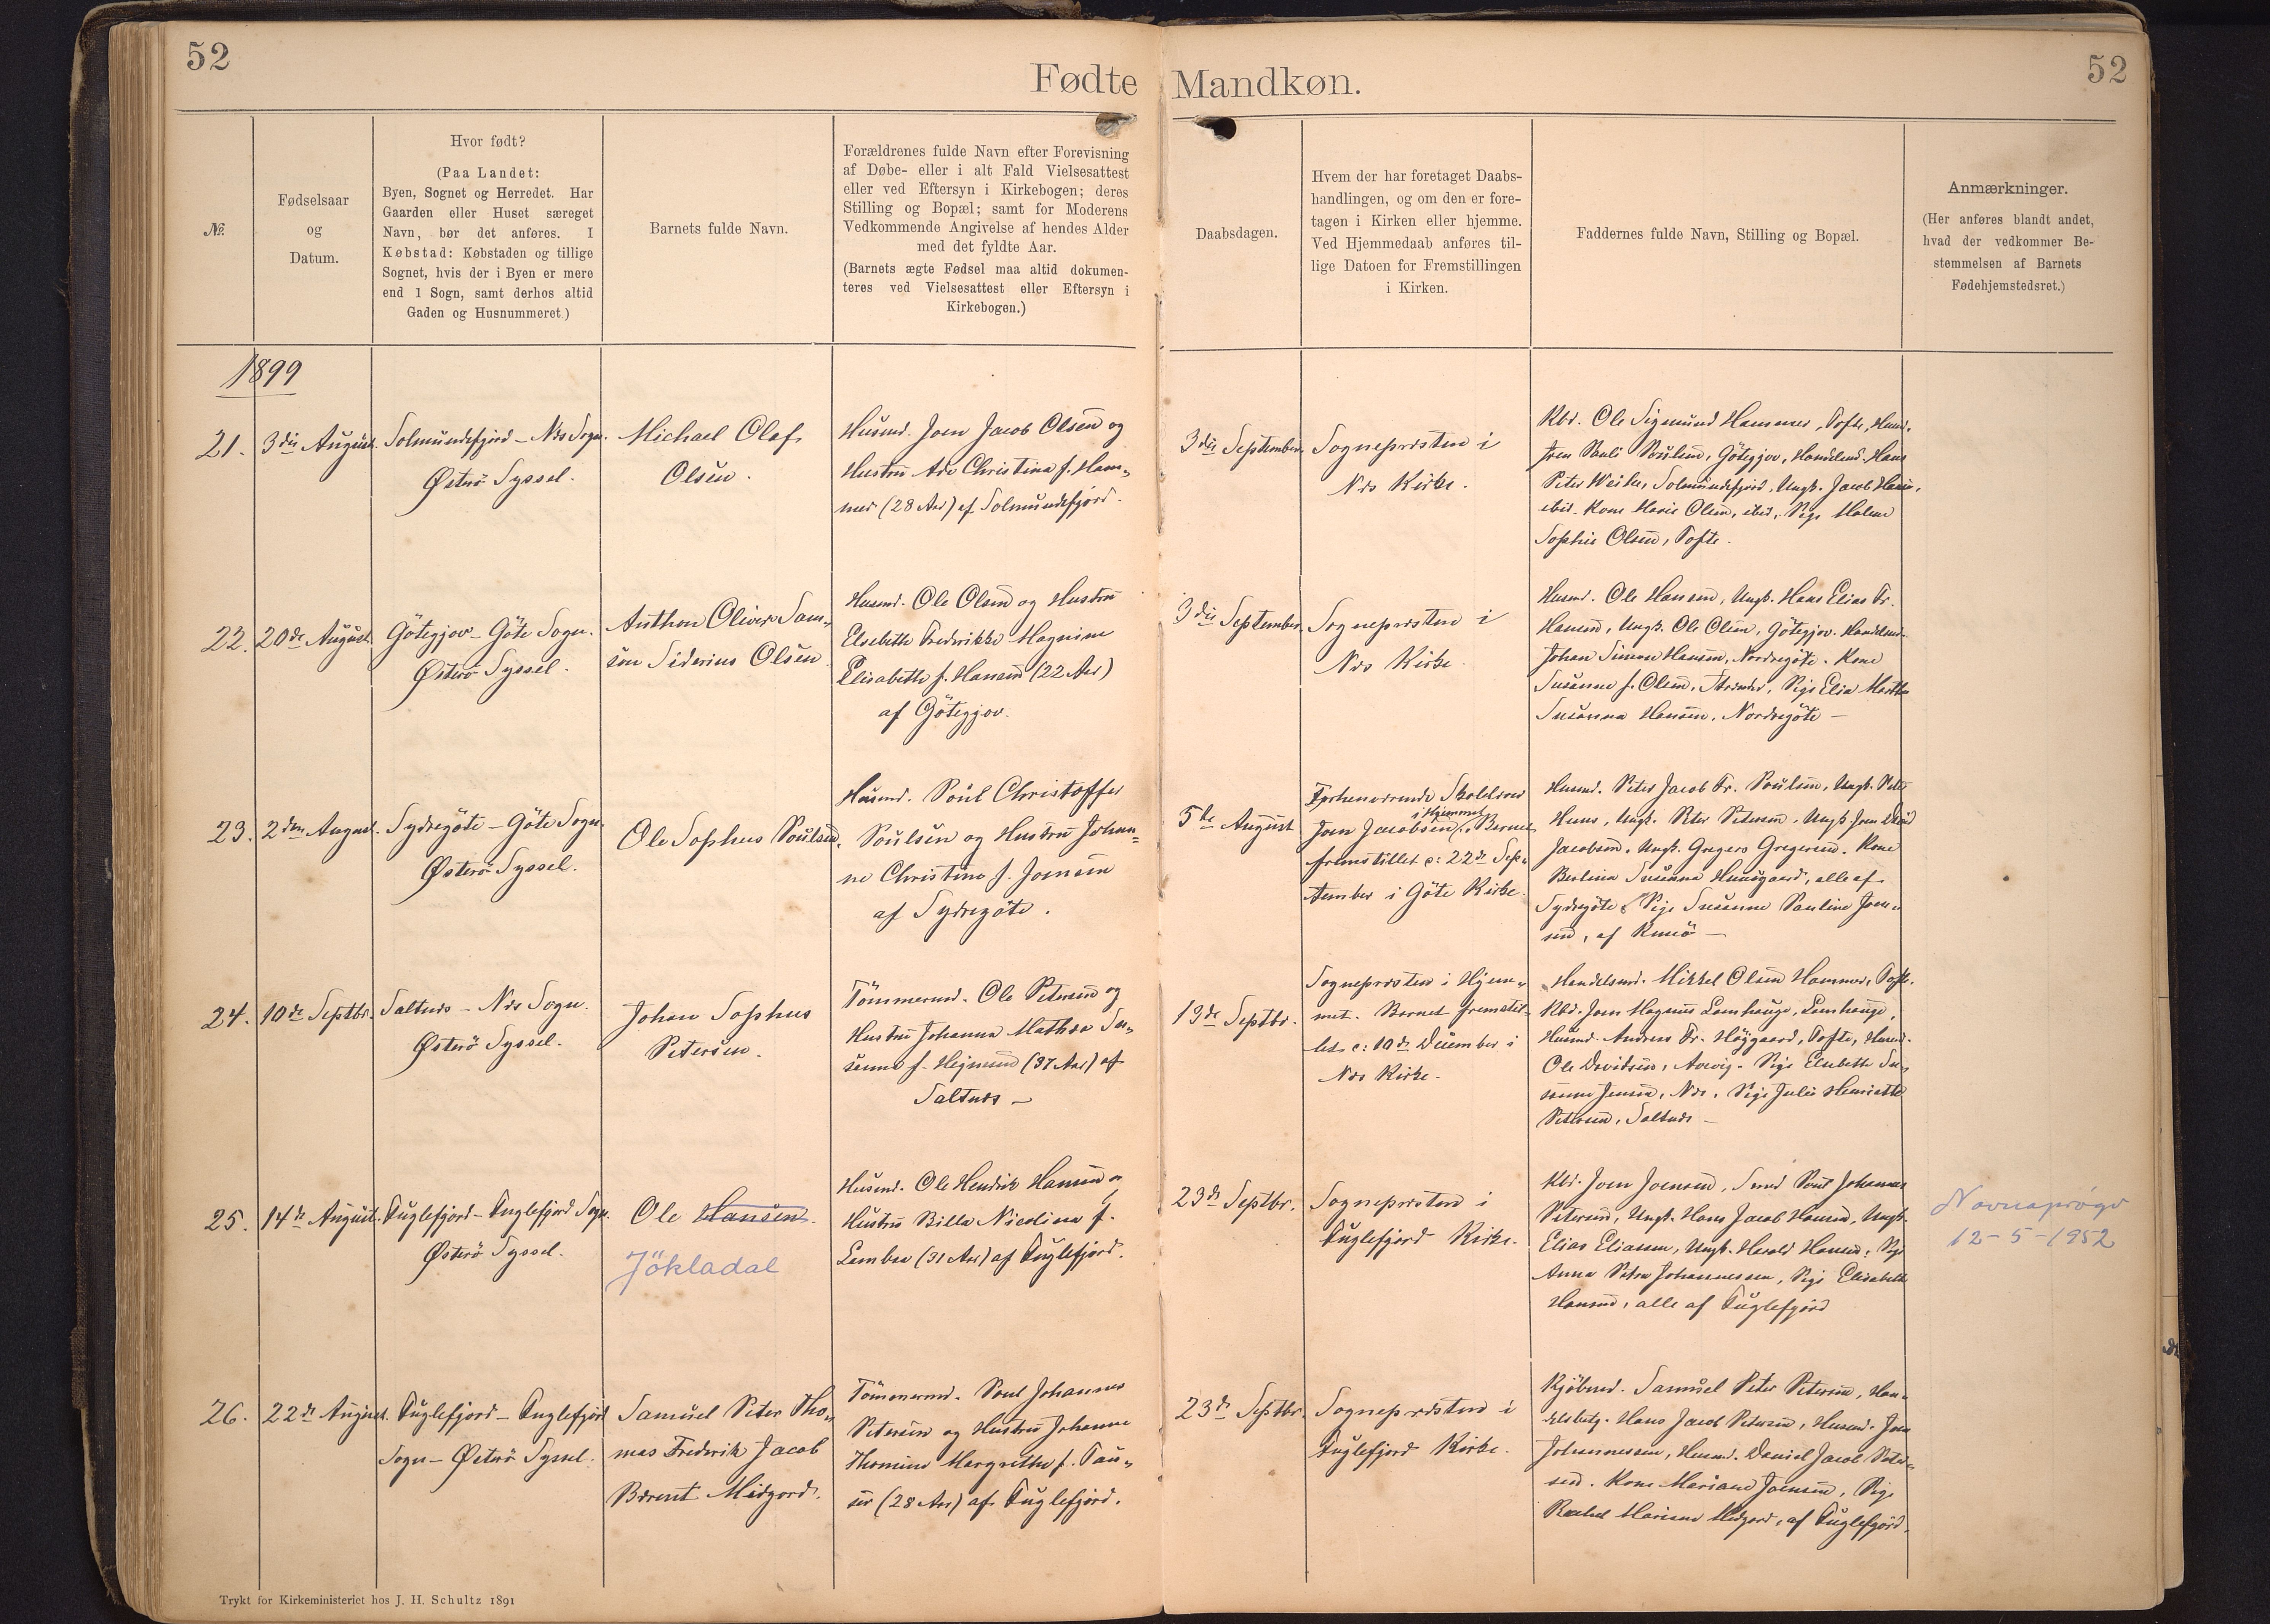 52
Fødte
Mandkøn.
52
№.
Fødselsaar
og
Datum.
Hvor født?
(Paa Landet:
Byen, Sognet og Herredet. Har
Gaarden eller Huset særeget
Navn, bør det anføres. I
Købstad: Købstaden og tillige
Sognet, hvis der i Byen er mere
end 1 Sogn, samt derhos altid
Gaden og Husnummeret.)
Barnets fulde Navn.
Forældrenes fulde Navn efter Forevisning
af Døbe- eller i alt Fald Vielsesattest
eller ved Eftersyn i Kirkebogen; deres
Stilling og Bopæl; samt for Moderens
Vedkommende Angivelse af hendes Alder
med det fyldte Aar.
(Barnets ægte Fødsel maa altid dokumen-
teres ved Vielsesattest eller Eftersyn i
Kirkebogen.)
Daabsdagen.
Hvem der har foretaget Daabs-
handlingen, og om den er fore-
tagen i Kirken eller hjemme.
Ved Hjemmedaab anføres til-
lige Datoen for Fremstillingen
i Kirken.
Faddernes fulde Navn, Stilling og Bopæl.
Anmærkninger.
(Her anføres blandt andet,
hvad der vedkommer Be-
stemmelsen af Barnets
Fødehjemstedsret.)
1899
21.
3die August.
Solmundefjord – Næs Sogn.
Østerö Syssel.
Michael Olaf
Olsen.
Husmd. Joen Jacob Olsen og
Hustru Ada Christina f. Ham-
mer (28 Aar) af Solmundefjord.
3die September.
Sognepræsten i
Næs Kirke.
Kbd. Ole Sigmund Hammer, Tofte, Husmd.
Joen Pauli Poulsen, Götegjov, Handelsmd. Hans
Peter Weihe, Solmundefjord, Ungk. Jacob
ibid. Kone Marie Olsen, ibid., Pige
Sophie Olsen, Tofte.
22.
20de August.
Götegjov – Göte Sogn.
Østerö Syssel.
Anthon Oliver Sam-
son Siderius Olsen.
Husmd. Ole Olsen og Hustru
Elsebeth Frederikke Magnine
Elisabeth f. Hansen (22 Aar)
af Götegjov.
3die September.
Sognepræsten i
Næs Kirke.
Husmd. Ole Hansen, Ungk. Hans Elias Fr.
Hansen, Ungk. Ole Olsen, Götegjov. Handelsmd.
Johan Simon Hansen, Nordregöte. Kone
Susanne f. Olsen, Strender, Pige Elia Martha
Susanna Hansen, Nordregöte –
23.
2den August.
Sydregöte – Göte Sogn.
Østerö Syssel.
Ole Sophus Poulsen.
Husmd. Poul Christoffer
Poulsen og Hustru Johan-
ne Christine f. Joensen
af Sydregöte.
5te August
Forhenværende Skolelærer
i Hjemmet
Joen Jacobsen. Barnet
fremstillet d: 22de Sep-
tember i Göte Kirke.
Husmd. Peter Jacob Fr. Poulsen, Ungk. Peter
Huus, Ungk. Peter Petersen, Ungk. Joen David
Jacobsen, Ungk. Gregers Gregersen. Kone
Berlina Susanna Huusgaard, alle af
Sydregöte, Pige Susanne Pauline Joen-
sen, af Kunö –
24.
10de Septbr.
Saltnæs – Næs Sogn.
Østerö Syssel.
Johan Sophus
Petersen.
Tömmermd. Ole Petersen og
Hustru Johanna Mathea Su-
sanne f. Hejnesen (37 Aar) af
Saltnæs –
13de Septbr.
Sognepræsten i Hjem-
met. Barnet fremstil-
let d: 10de December i
Næs Kirke.
Handelsmd. Mikkel Olsen Hammer, Tofte.
Kbd. Joen Magnus Lamhauge, Lamhauge,
Husmd. Andreas Fr. Höjgaard, Tofte, Husmd.
Ole Davidsen, Æreviig. Pige Elsebeth Su-
sanne Jensen, Næs, Pige Julie Henriette
Petersen, Saltnæs –
25.
14de August.
Fuglefjord – Fuglefjord Sogn.
Østerö Syssel.
Ole Hansen.
Jökladal
Husmd. Ole Hendrik Hansen og
Hustru Billa Nicolina f.
Lamba (31 Aar) af Fuglefjord.
23de Septbr.
Sognepræsten i
Fuglefjord Kirke.
Kbd. Joen Joensen, Smed Poul Johannes
Petersen, Ungk. Hans Jacob Hansen, Ungk.
Elias Eliassen, Ungk. Harald Hansen, Pige
Anna Petra Johannessen, Pige Elisabeth
Hansen, alle af Fuglefjord
Navnaprógv
12-5-1952
26.
22de August.
Fuglefjord – Fuglefjord
Sogn – Østerö Syssel.
Samuel Peter Tho-
mas Frederik Jacob
Bærent Midgord.
Tömmermd. Poul Johannes
Petersen og Hustru Johanne
Thomine Margrethe f. Pau-
(28 Aar) af Fuglefjord.
23de Septbr.
Sognepræsten i
Fuglefjord Kirke.
Kjöbmd. Samuel Peter Petersen, Han-
delsbetj. Hans Jacob Petersen, Husmd. Joen
Johannessen, Husmd. Daniel Jacob Peter-
sen. Kone Mariane Joensen, Pige
Rachel Mariane Midgord, af Fuglefjord.
Trykt for Kirkeministeriet hos J. H. Schultz 1891